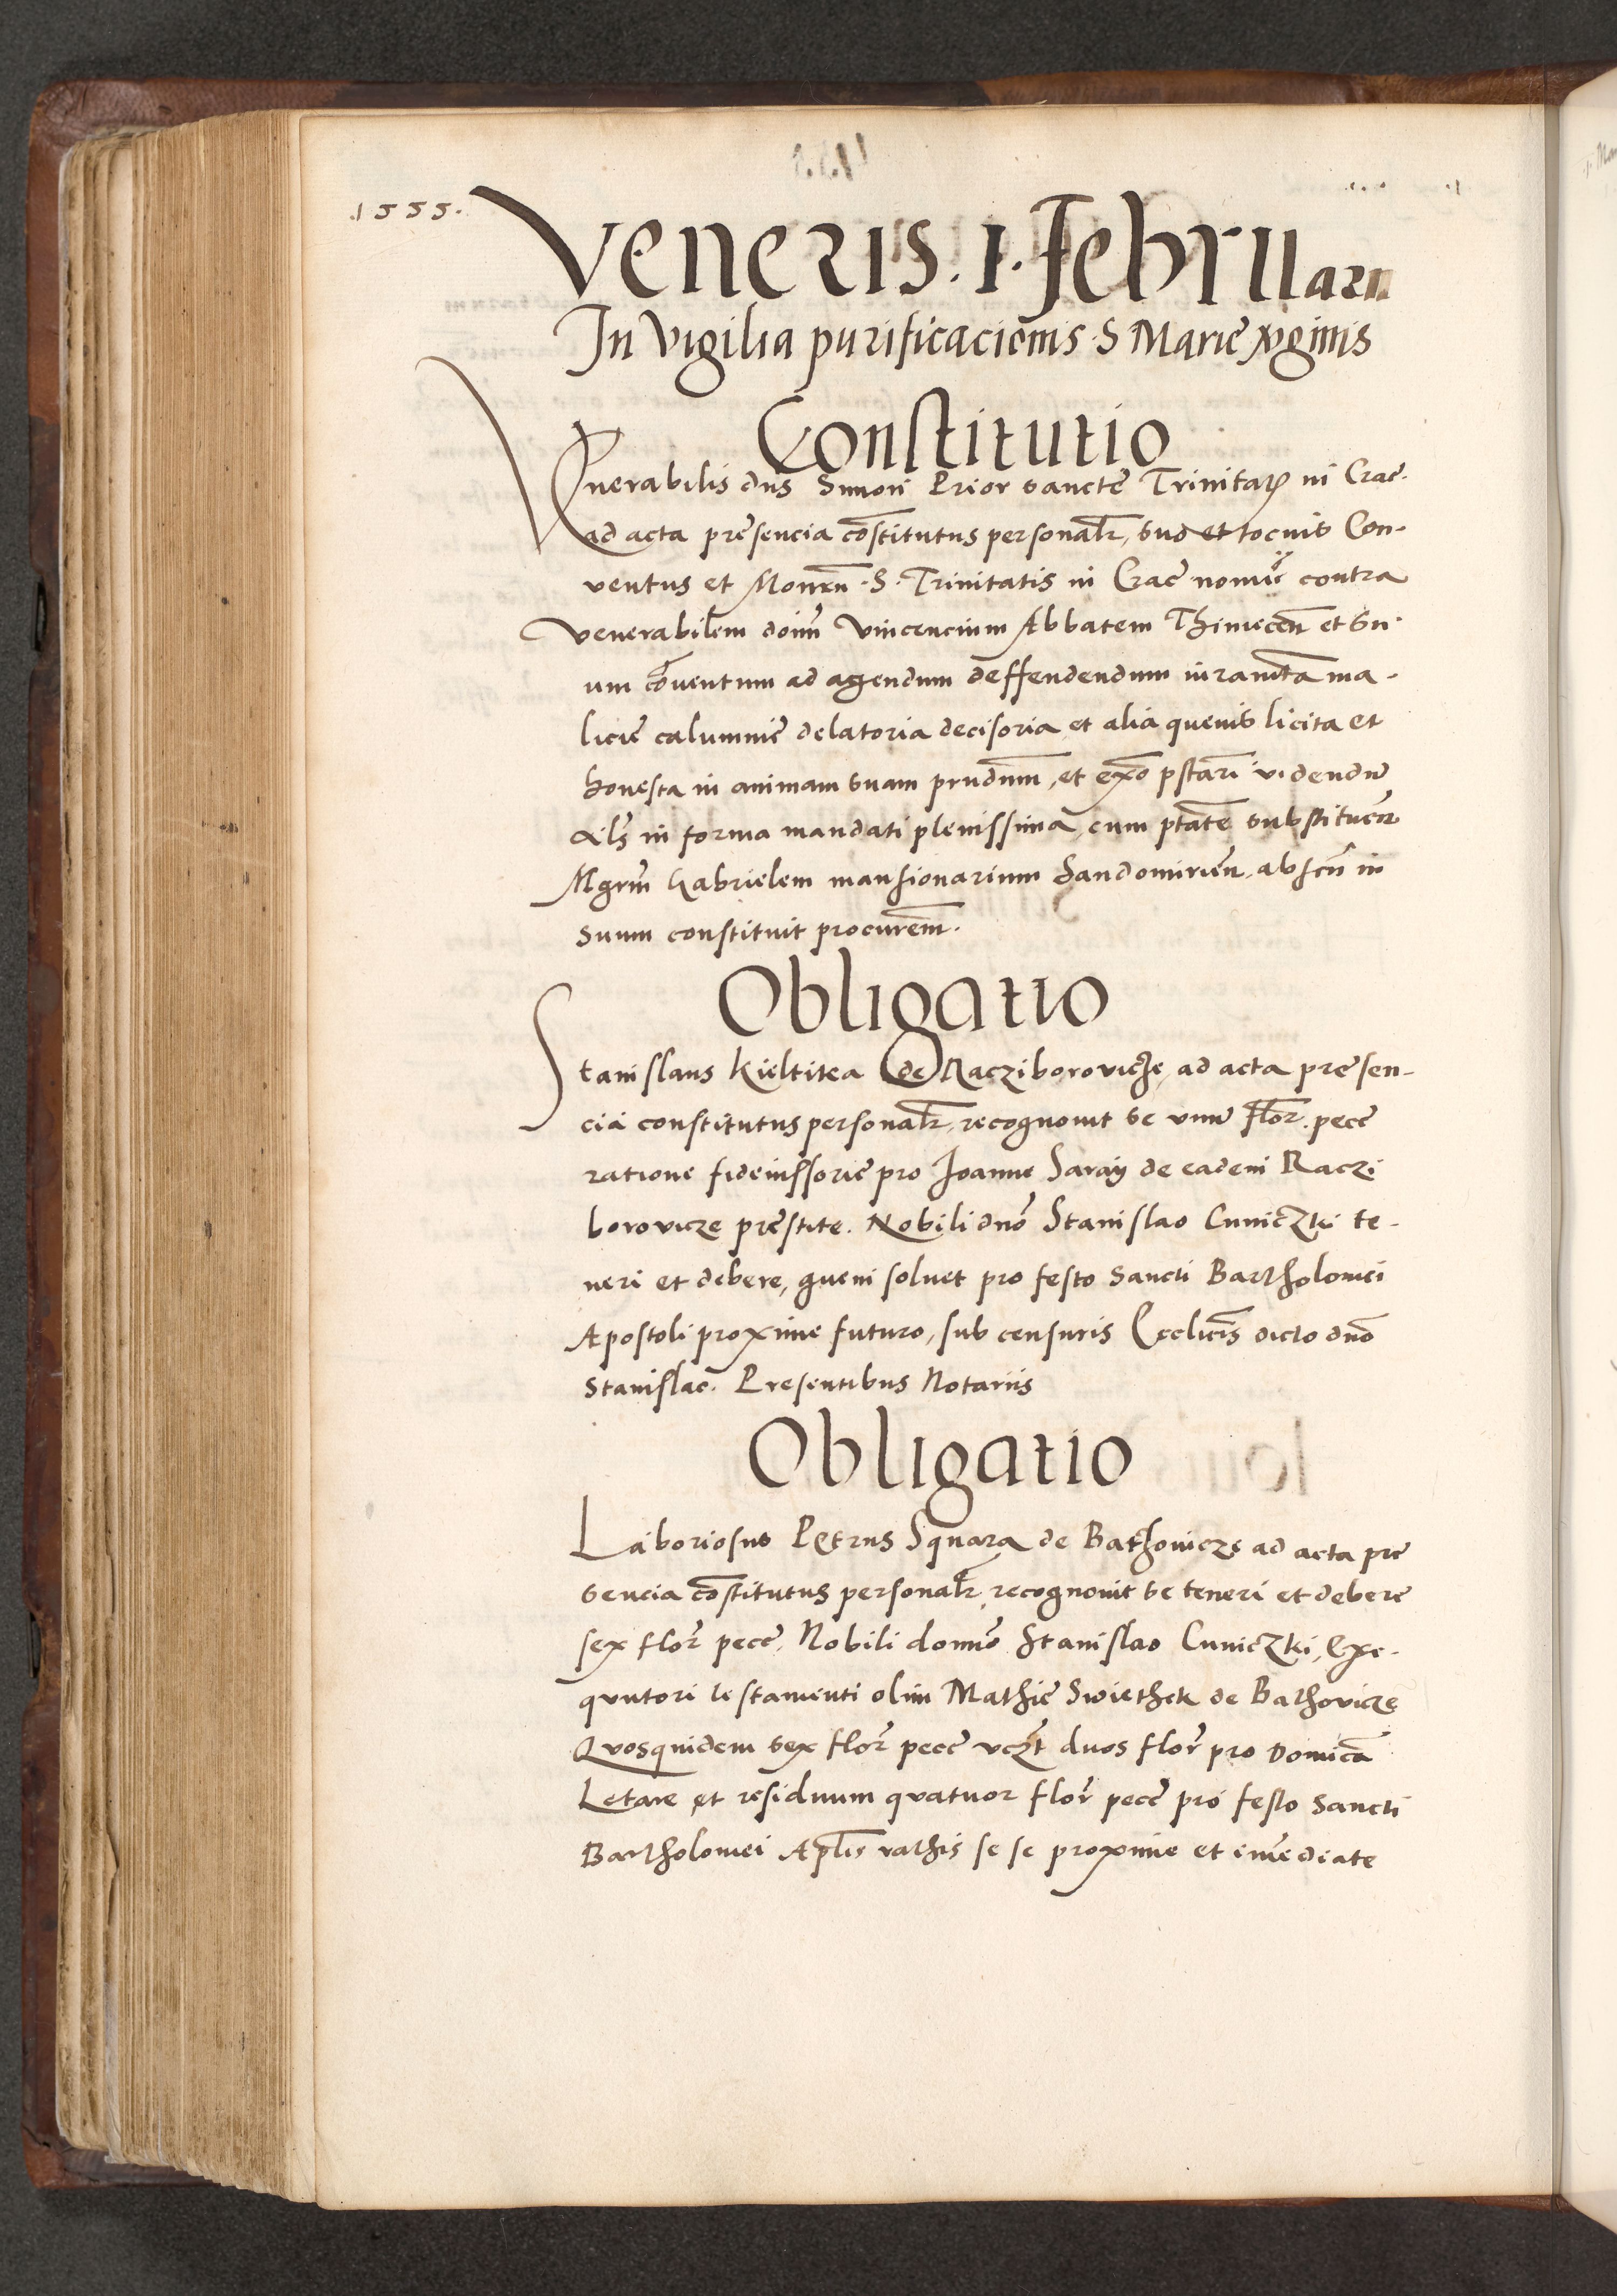 .1555.
Veneris . 1 . Februarii
In Vigilia purificacionis . S Marie xginis
Constitutio
Venerabilis dns Simon Prior sancte Trinitatis in Crac.
ad acta presencia constitutus personalr, suo et tocius Con-
ventus et Monrii . S . Trinitatis in Crac nomie contra
venerabilem doim Vincencium Abbatem Thinecen et Su-
um conventum ad agendum deffendendum iuramta ma-
licie calumnie delatoria decisoria et alia quevis licita et
honesta in animam suam prndum, et pstari videndu
als in forma mandati plenissima, cum ptate substituen
Mgrm Gabrielem mansionarium Sandomirien. absen in
suum constituit procurem.
Obligatio
Stanislaus Kieltika de Racziborovicze, ad acta presen-
cia constitutus personalr, recognovit se unu flor. pece
ratione fideiussorie pro Joanne Saray de eadem Raczi
borovicze prestite. Nobili dno Stanislao Cuniczki te-
neri et debere, quem solvet pro festo Sancti Bartholomei
Apostoli proxime futuro, sub censuris Ecclicis dicto dno
Stanislao. Presentibus Notariis
Obligatio
Laboriosus Petrus Squara de Bathovicze ad acta pre
sencia constitutus personalr, recognovit se teneri et debere
sex flor pece, Nobili domio Stanislao Cuniczki, Exe-
qvutori testamenti olim Mathie Swiethek de Bathovicze
Quosquidem sex flor pece vczt duos flor pro Domica
Letare et residuum quatuor flor pece pro festo Sancti
Bartholomei Apli rathis se se proxime et imediate